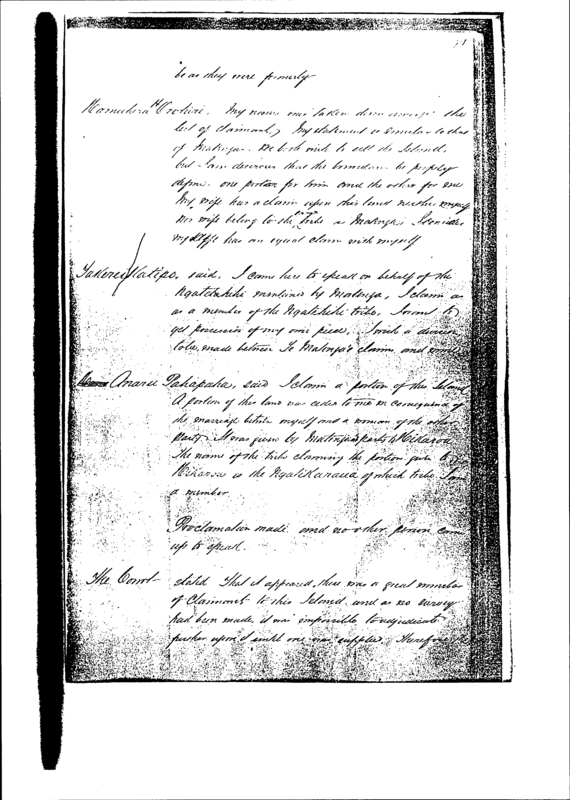 be as they were formerly
My name was taken down amongst the
list of claimants, My statement is similar to that
of Matenga. We both wish to sell the Island.
but I am desirous that the boundary be properly
define. one portion for him and the other for me
My wife has a claim upon this land neither myself
nor wife belong to the tribe as Matenga. I consider
my wife has an equal claim with myself
said. I came here to speak on behalf of the
mentioned by Matenga, I claim as
as a member of the tribe. I want to
get possession of my own piece. I wish a division
to be made between Te Matenga's claim and mine
Anaru Pahapaha, said I claim a portion of this Island
A portion of this land was ceded to me in consequence of
the marriage between myself and a woman of the other
party. It was given by
The name of the tribe claiming the portion given to
is the of which tribe I am
a member
Proclamation made and no other person came
up to speak.
The Court stated That it appeared, there was a great number
of Claimants to this Island and as no survey
had been made it was impossible to adjudicate
further upon it until one was supplied. Therefore